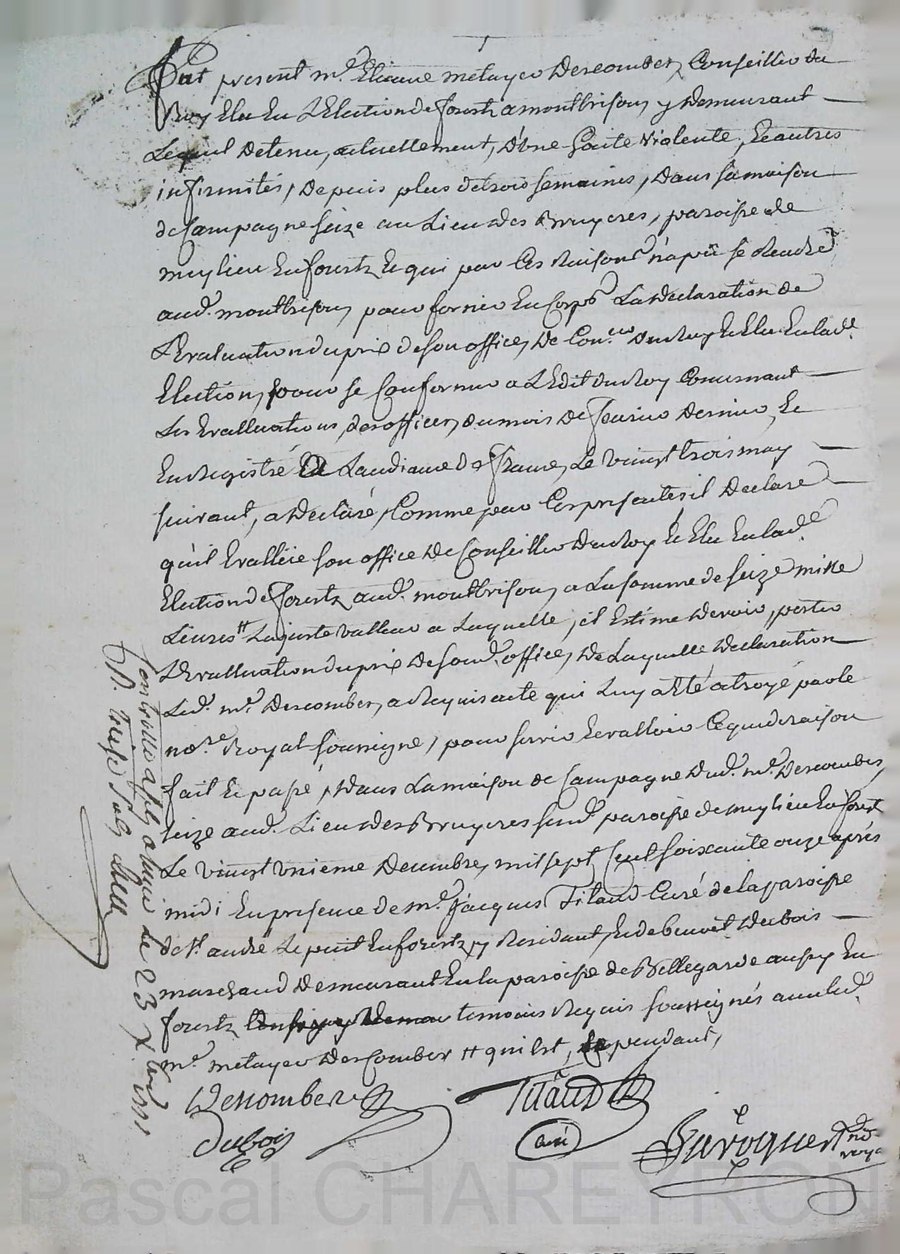 Fut present m.e Etienne metayer Descombes, Conseiller du
Roy Elu En L'Election de forestz a montbrison, y Demeurant
Lequel Detenu, actuellement, d'Une Goute Violente, Et autres
infirmités, Depuis plus de trois semaines, Dans sa maison
de Campagne size au Lieu des Bruyeres, paroisse de
meylieu En forestz, Et qui pour Ces Raisons n'a pû se Rendre
aud. montbrison, pour fornir En Corps La Declaration de
L'Evaluation du prix de son office, De Con.er Du Roy Et Elu En lad.e
Election, pour se Conformer a L'Edit du Roy Concernant
Les Evalluations, des offices, du mois de fevrier Dernier, Et
Enregistré La audiance de france, Le vingt trois may
suivant, a Declaré, Comme par Ces presentes il Declare
qu'il Evallüe son office De Conseiller Du Roy Et Elu En lad.e
Election de forestz aud. montbrison, a La somme de seize mille
Livres tt La juste valleur a Laquelle, il Estime Devoir, porter
L'Evalluation du prix De son d. office, De Laquelle Declaration
Led. m.e Descombes, a Requis acte qui Luy a Eté atroyé par le
no.re Royal soussigne, pour servir Et valloir Ce que de raison
fait Et passé, Dans La maison de Campagne Dud. m.e Descombes,
size aud. Lieu des Bruyeres sud. paroisse de meylieu En forest
Le vingt Unieme Decembre, mil sept Cent soixante onze après
midi En presence de m.e Jacques Tiland Curé de la paroisse
de St. andré Le puit En forestz, y Residant, Et de benoit Dubois
marchand Demeurant En la paroisse de Bellegarde aussy En
forestz temoins Requis soussignés avec led.
m.e metayer Descombes tt qui Est, Cependant,
Descombes
Dubois
Tiland
curé
Baroquer no.re
royal
Controllé a Le 23 X.bre 1771
R. treize sols
Pascal CHAREYRON